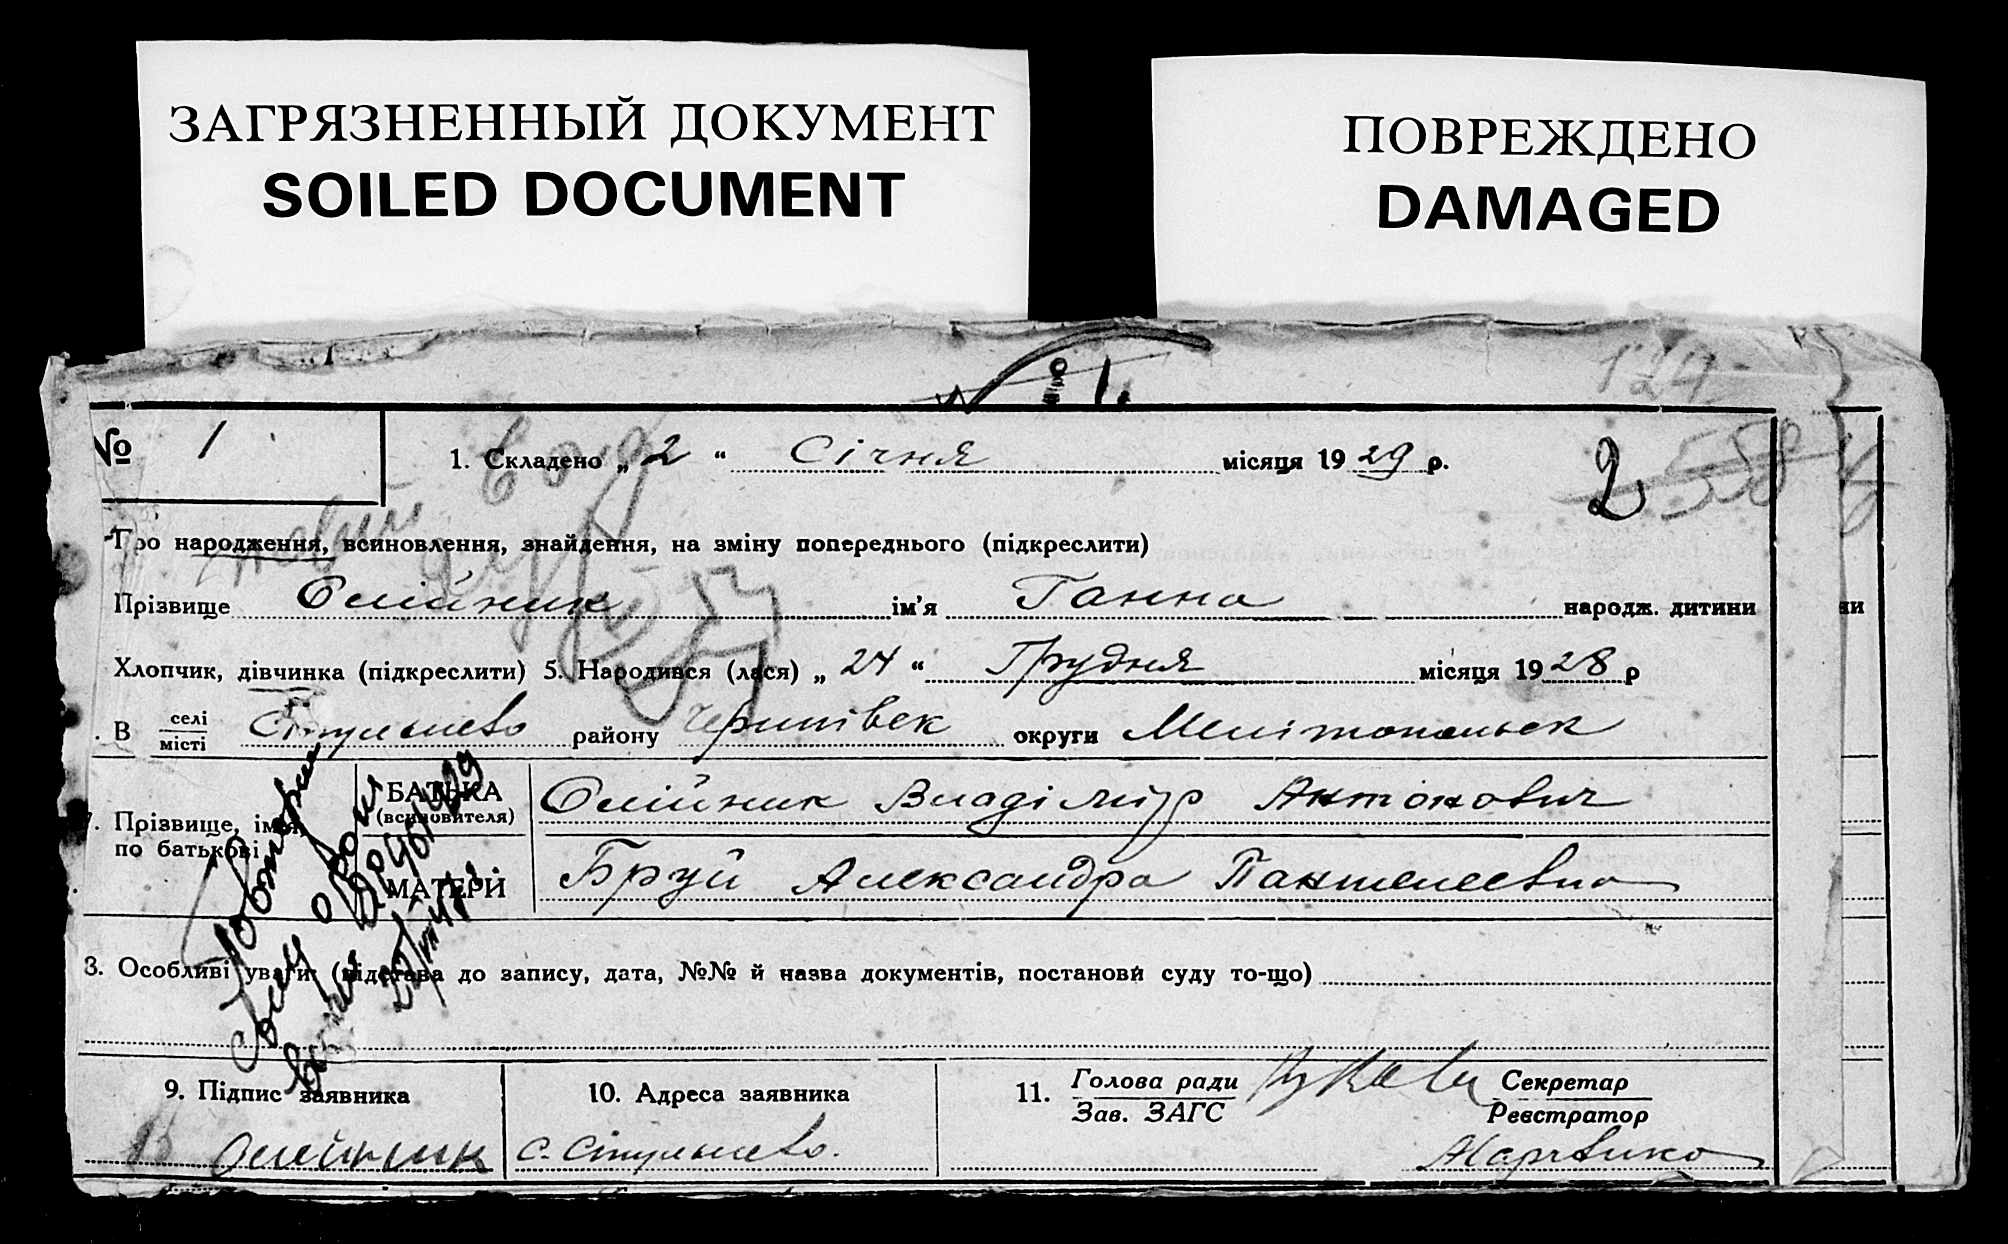 ЗАГРЯЗНЕННЫЙ ДОКУМЕНТ
SOILED DOCUMENT
ПОВРЕЖДЕНО
DAMAGED
124
№ 1
1. Складено „ 2 “ Січня місяця 1929 р.
2
558
Про народження, всиновлення, знайдення, на зміну попереднього (підкреслити)
Прізвище Олійник ім'я Ганна народж. дитини
ни
Хлопчик, дівчинка (підкреслити) 5. Народився (лася) „ 24 “ Грудня місяця 1928 р
. В селі місті району округи Мелітопольск
7. Прізвище, ім'я, по батькові
БАТЬКА (всиновителя) Олійник Владімір Антонович
МАТЕРИ Бруй Александра Пантелеевна
Повторне
8. Особливі уваги (підстава до запису, дата, №№ й назва документів, постанови суду то-що)
9. Підпис заявника
Олейник
10. Адреса заявника
с.
11. Голова ради
Зав. ЗАГС
Секретар
Реєстратор